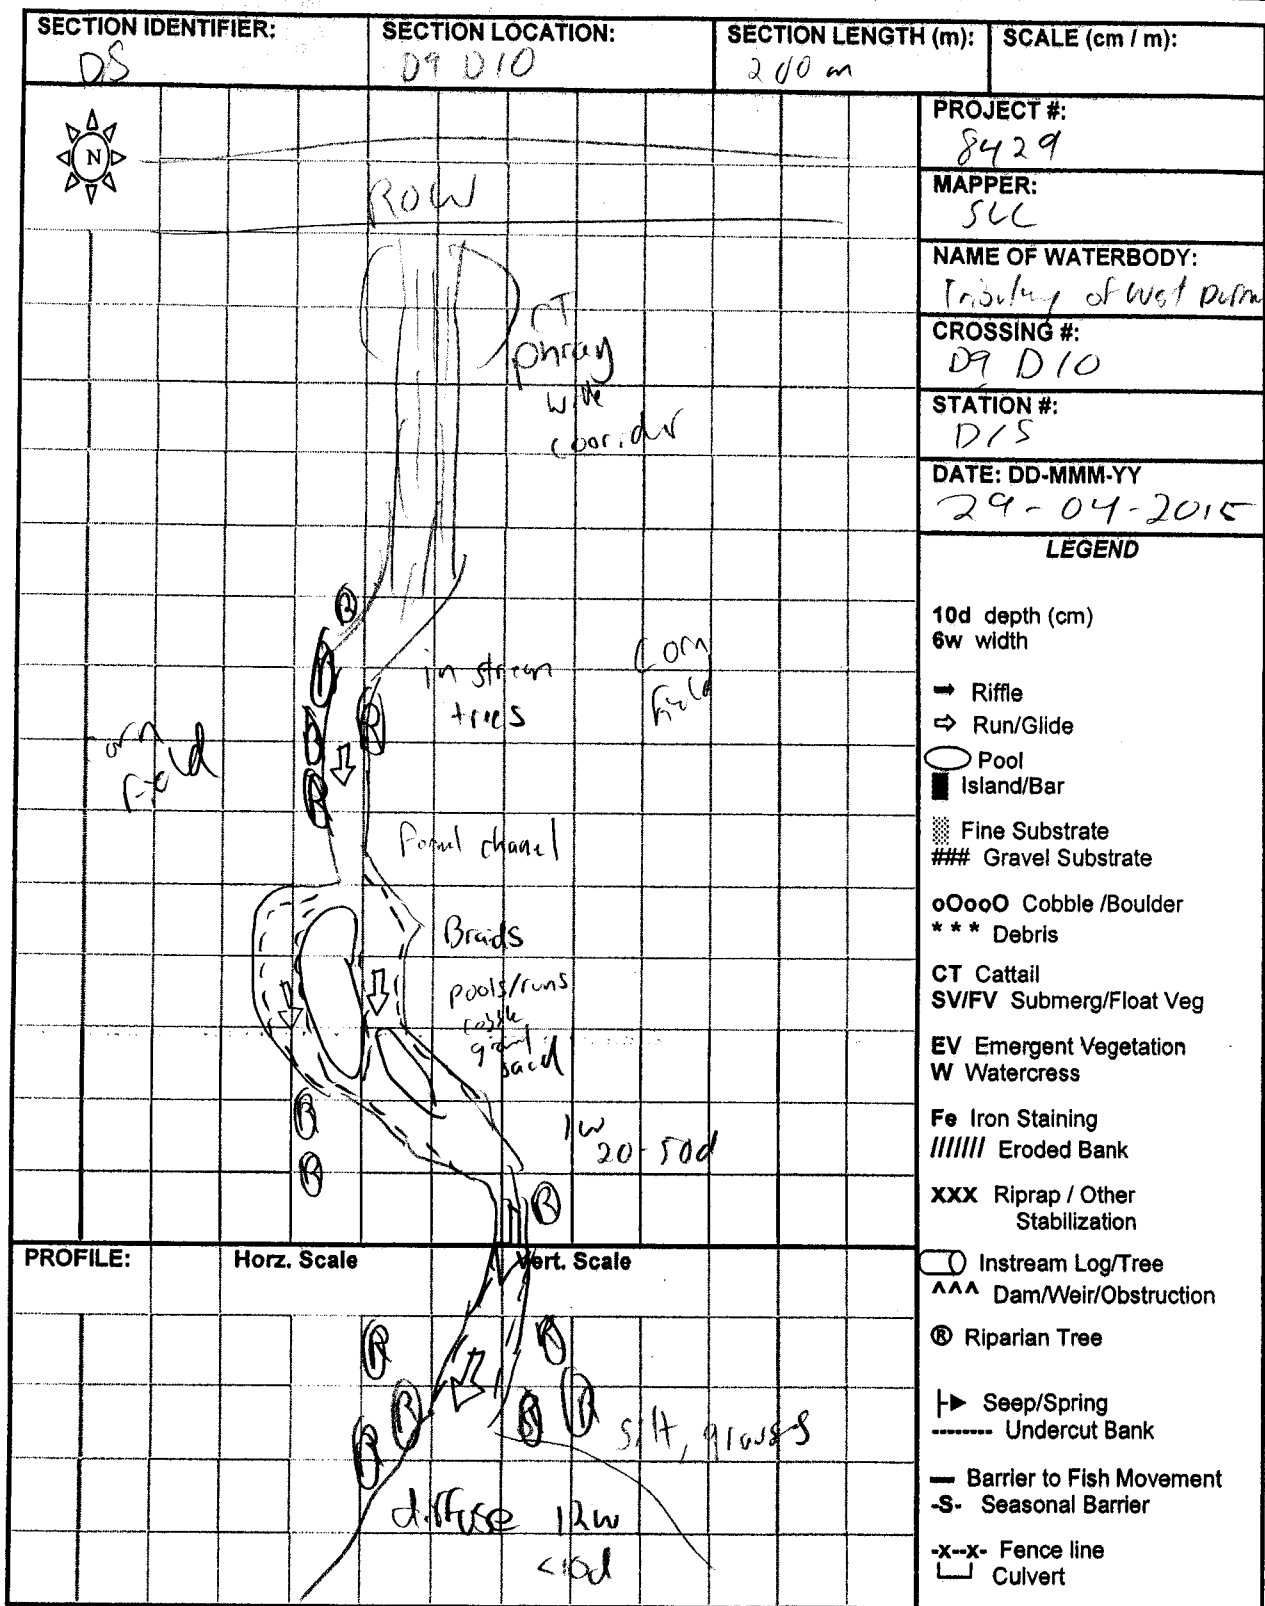 SECTION IDENTIFIER:
DS
SECTION LOCATION:
D9 D10
SECTION LENGTH (m):
200 m
SCALE (cm / m):
N
ROW
CT
phrag
wide
cooridor
in stream
trees
Corn
Field
Corn
Field
R
R
R
R
R
Formal channel
Braids
pools/runs
cobble
gravel
sand
1w
20-50d
R
R
R
PROJECT #:
8429
MAPPER:
SLC
NAME OF WATERBODY:
Tributary of West
CROSSING #:
D9 D10
STATION #:
D/S
DATE: DD-MMM-YY
29-04-2015
LEGEND
10d depth (cm)
6w width
Riffle
Run/Glide
Pool
Island/Bar
Fine Substrate
### Gravel Substrate
oOooO Cobble /Boulder
* * * Debris
CT Cattail
SV/FV Submerg/Float Veg
EV Emergent Vegetation
W Watercress
Fe Iron Staining
/////// Eroded Bank
XXX Riprap / Other
Stabilization
Instream Log/Tree
^^^ Dam/Weir/Obstruction
® Riparian Tree
Seep/Spring
-------- Undercut Bank
Barrier to Fish Movement
-S- Seasonal Barrier
-x--x- Fence line
Culvert
PROFILE:
Horz. Scale
Vert. Scale
R
R
R
R
R
R
silt, grasses
diffuse 12w
<10d